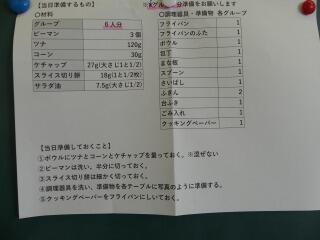 【当日準備するもの】
○材料
グループ 6人分
ピーマン 3個
ツナ 120g
コーン 30g
ケチャップ 27g(大さじ1と1/2)
スライス切り餅 18g(1と1/2枚)
サラダ油 7.5g(大さじ1/2)
分準備をお願いします
○調理器具・準備物 各グループ
フライパン 1
フライパンのふた 1
ボウル 1
包丁 1
まな板 1
スプーン 1
さいばし 1
ふきん 2
台ふき 1
ごみ入れ 1
クッキングペーパー 1
【当日準備しておくこと】
①ボウルにツナとコーンとケチャップを量っておく。※混ぜない
②ピーマンは洗い、半分に切っておく。
③スライス切り餅は細かく切っておく。
④調理器具を洗い、準備物を各テーブルに写真のように準備する。
⑤クッキングペーパーをフライパンにしいておく。